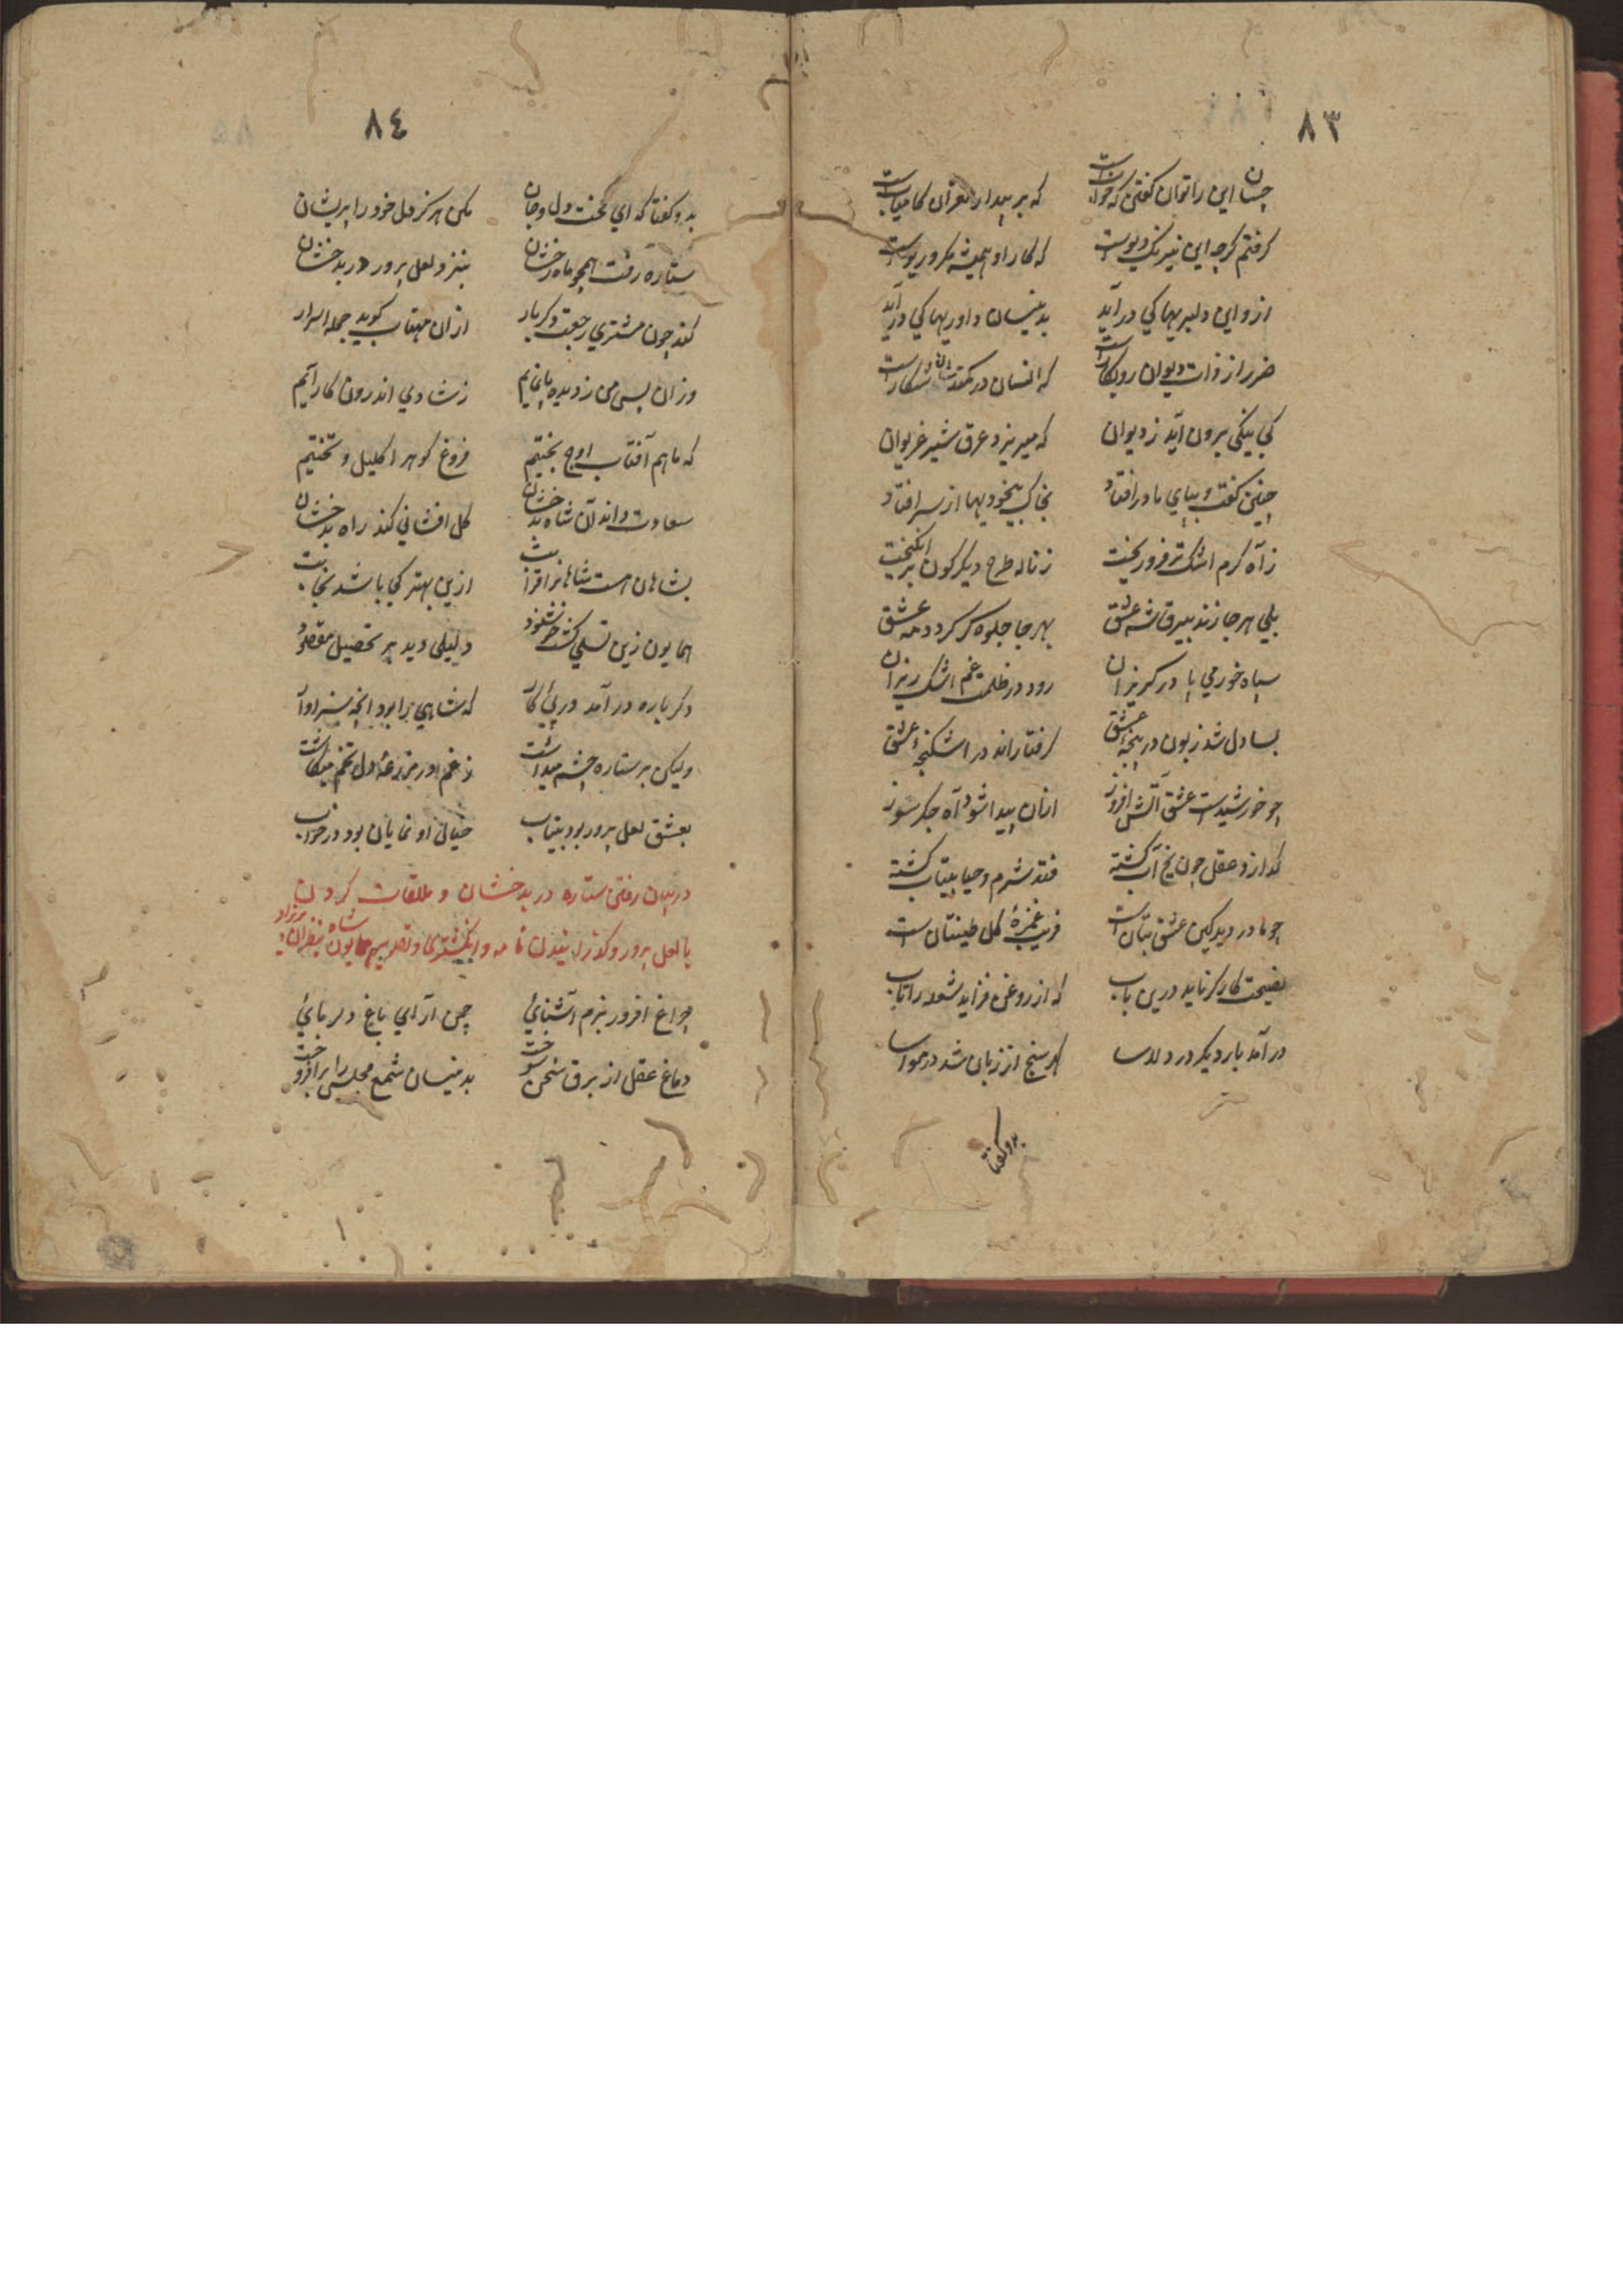 ٨٣
چسان این را توان گفتن که خوابست که بر بیدار تعزان کامیابست
گرفتم گرچه این نیرنگ دیوست که کار او همیشه مکر و ریوست
ازو این دلبریها کی در آید بدینسان داوریها کی در آید
ضرر از ذات دیوان روبکارست که انسان در کمند شان شکارست
کی نیکی برون آید ز دیوان که میریزد عرق شیر غریوان
چنین گفت و بپای مادر افتاد بخاک بیخودیها از سر افتاد
ز آه گرم اشک تر فرو ریخت ز ناله طرح دیگرگون بر انگیخت
بلی هر جا زند بیرق شه عشق بهر جا جلوه گر گردد مه عشق
سپاه خورمی پا در گریزان رود در ظلمت غم اشک ریزان
بسا دل شد زبون در پنجهٔ عشق گرفتاراند در اشکنجهٔ عشق
چو خورشیدست عشق آتش افروز ازان پیدا شود آه جگر سوز
گدازد عقل چون یخ آب گشته فتد شرم و حیا بیتاب گشته
چو مادر دید کین عشق بتان است فریب غمزهٔ گل طینتان است
نصیحت کارگر ناید درین باب که از روغن فزاید شعله را تاب
در آمد بار دیگر در دلاسا گهر سنج از زبان شد در مواسا
بدو گفتا
٨٤
بدو گفتا که ای لخت دل و جان مکن هرگز دل خود را پریشان
ستاره رفت همچو ماه رخشان بنزد لعل پرور در بدخشان
کند چون مشتری رجعت دگر بار ازان مهتاب گوید جمله اسرار
وزان پس من ز دیده پا نمایم ز شادی اندرون کار آیم
که ما هم آفتاب اوج بختیم فروغ گوهر اکلیل و تختیم
سعادت داند آن شاه بدخشان گل افشانی کند راه بدخشان
بشاهان هست شاهانرا قرابت ازین بهتر کی باشد نجابت
همایون زین تسلی گشت خوشنود دلیلی دید بر تحصیل مقصود
دگر باره در آمد در پئ کار که شاهی را بود انچه سزاوار
ولیکن بر ستاره چشم میداشت ز غم در مزرعهٔ دل تخم میکاشت
بعشق لعل پرور بود بیتاب خیال او نمایان بود در خواب
در بیان رفتن ستاره در بدخشان و ملاقات کردن
با لعل پرور و گذرانیدن نامه و انگشتری و تصویر همایون شاه بنظر آن
چراغ افروز بزم آشنائی چمن آرای باغ دلربائی
دماغ عقل از برق سخن سوخت بدینسان شمع مجلس را بر افروخت